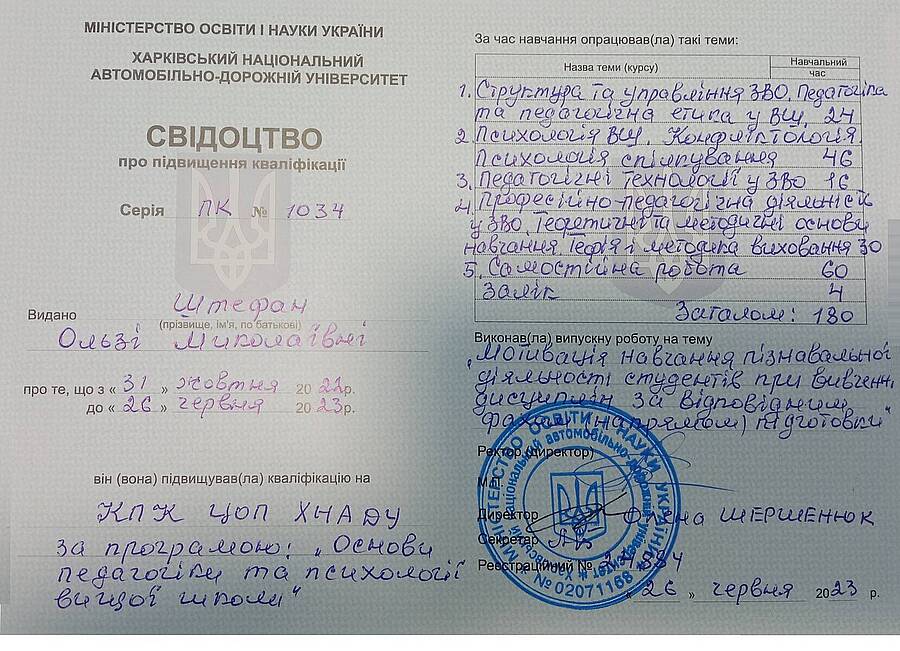 МІНІСТЕРСТВО ОСВІТИ І НАУКИ УКРАЇНИ
ХАРКІВСЬКИЙ НАЦІОНАЛЬНИЙ
АВТОМОБІЛЬНО-ДОРОЖНІЙ УНІВЕРСИТЕТ
СВІДОЦТВО
про підвищення кваліфікації
Серія ПК № 1034
Видано Штефан
(прізвище, ім'я, по батькові)
Ользі Миколаївні
про те, що з « 31 » жовтня 2022р.
до « 26 » червня 2023р.
він (вона) підвищував(ла) кваліфікацію на
КПК ЦОП ХНАДУ
за програмою: „Основи
педагогіки та психології
вищої школи"
За час навчання опрацював(ла) такі теми:
Назва теми (курсу) Навчальний
час
1. Структура та управління ЗВО. Педагогіка
та педагогічна етика у ВШ. 24
2. Психологія ВШ. Конфліктологія.
Психологія спілкування 46
3. Педагогічні технології у ЗВО 16
4. Професійно-педагогічна діяльність
у ЗВО. Теоретичні та методичні основи
навчання. Теорія і методика виховання 30
5. Самостійна робота 60
Залік 4
Загалом: 180
Виконав(ла) випускну роботу на тему
„Мотивація навчання пізнавальної
діяльності студентів при вивченні
дисциплін за відповідним
фахом (напрямом) підготовки"
Ректор (директор)
М.П.
Директор Олена ШЕРШЕНЮК
Секретар
Реєстраційний №
« 26 » червня 2023 р.
МІНІСТЕРСТВО ОСВІТИ І НАУКИ УКРАЇНИ
Харківський національний автомобільно-дорожній університет
№ 02071168